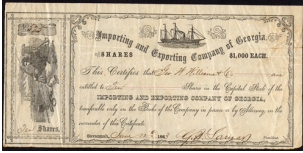 Importing and Exporting Company of Georgia.
SHARES $1,000 EACH.
This Certifies that Geo. W. Williams & Co.
entitled to Ten Shares in the Capital Stock of the
IMPORTING AND EXPORTING COMPANY OF GEORGIA,
transferable only on the Books of the Company in person or by Attorney, on the
surrender of this Certificate.
Ten Shares.
Savannah, 1863